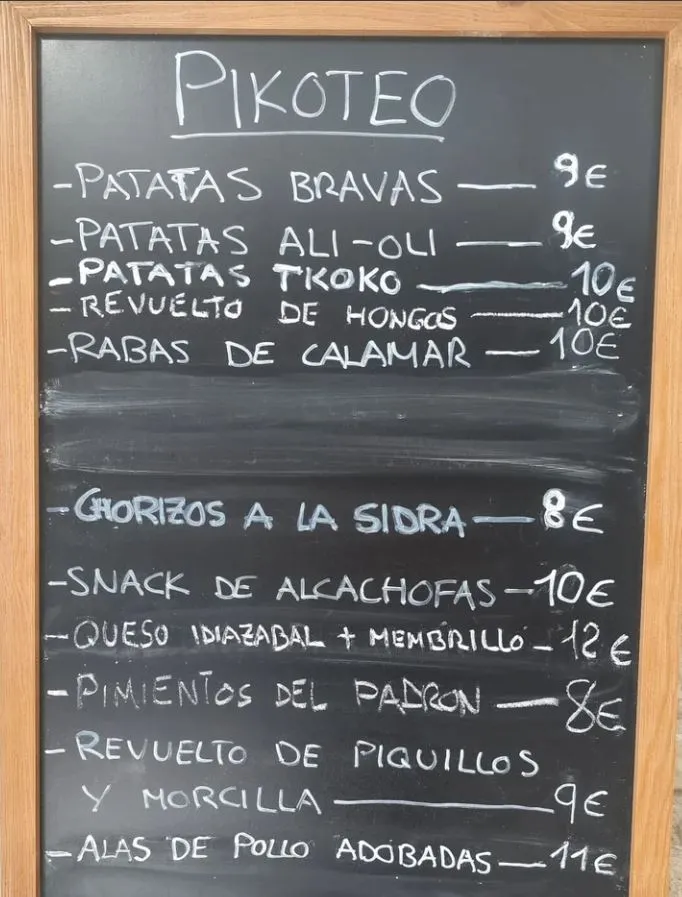 PIKOTEO
- PATATAS BRAVAS — 9€
- PATATAS ALI-OLI — 9€
- PATATAS TKOKO — 10€
- REVUELTO DE HONGOS — 10€
- RABAS DE CALAMAR — 10€
- CHORIZOS A LA SIDRA — 8€
- SNACK DE ALCACHOFAS — 10€
- QUESO IDIAZABAL + MEMBRILLO - 12€
- PIMIENTOS DEL PADRON — 8€
- REVUELTO DE PIQUILLOS
Y MORCILLA — 9€
- ALAS DE POLLO ADOBADAS — 11€